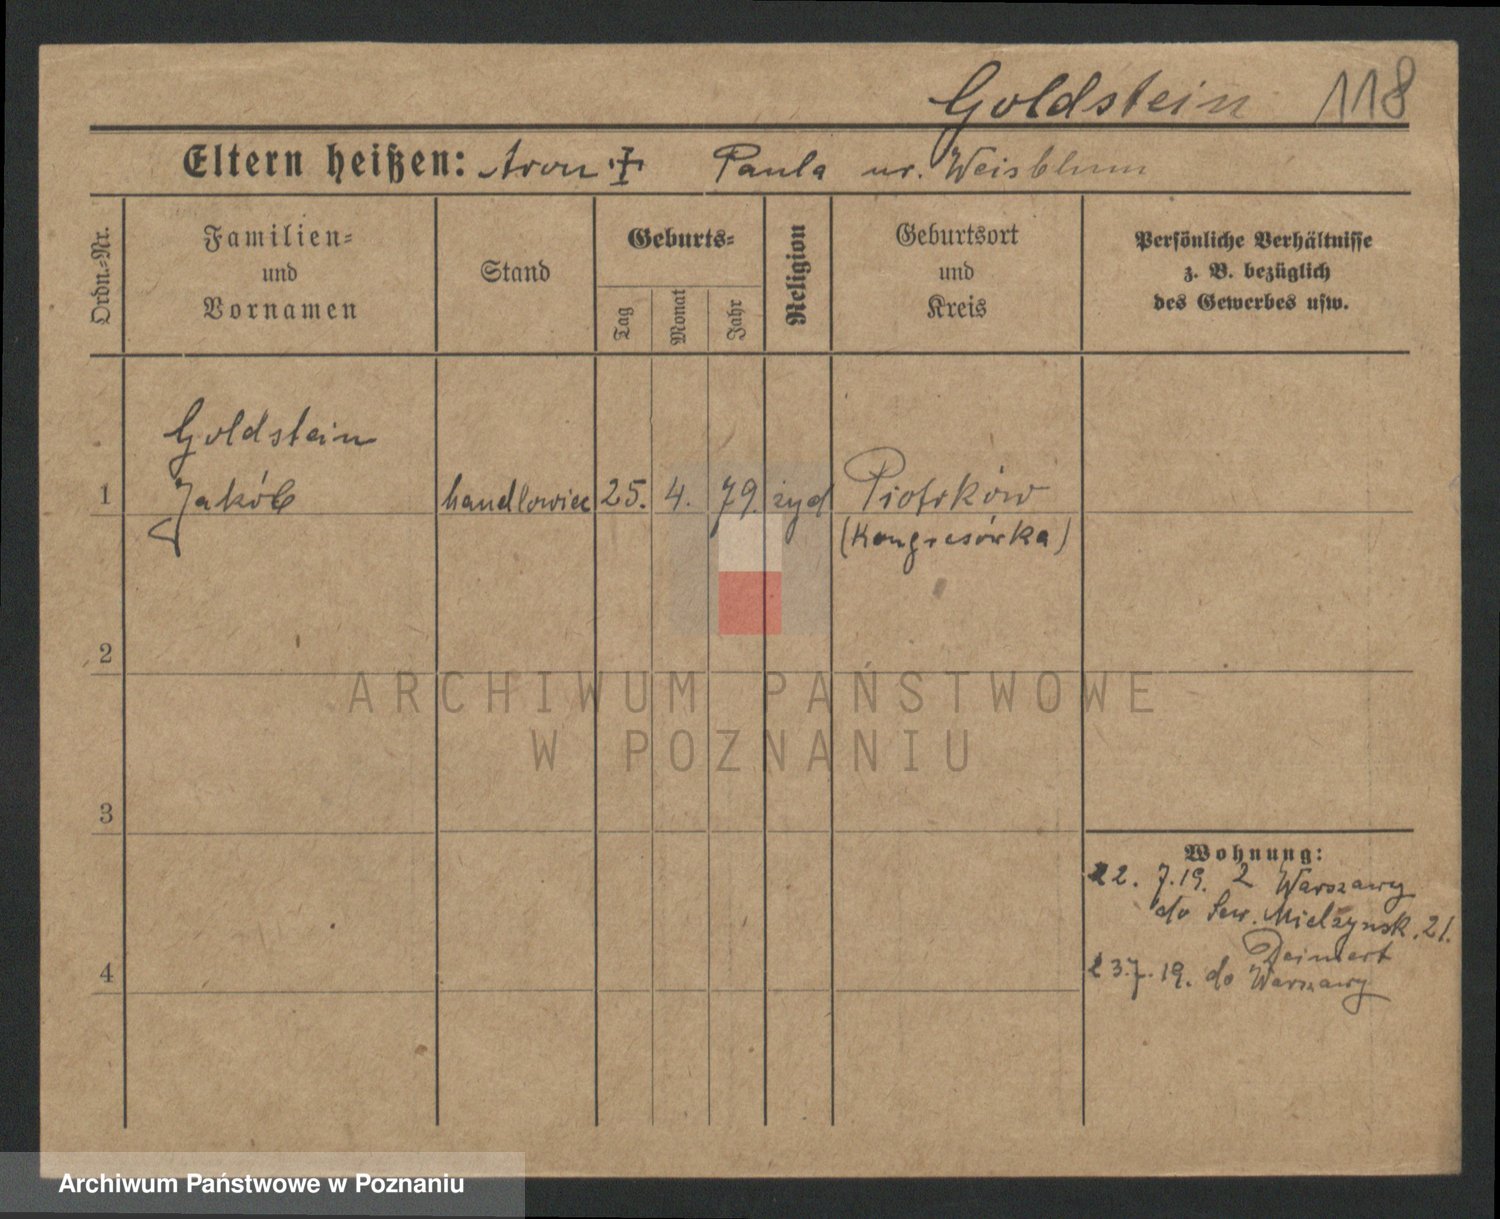 Goldstein 118
Eltern heißen: Aron ‡ Paula ur. Weisblum
Ordn.-Nr.
Familien-
und
Vornamen
Stand
Geburts-
Tag
Monat
Jahr
Religion
Geburtsort
und
Kreis
Persönliche Verhältnisse
z. B. bezüglich
des Gewerbes usw.
Goldstein
1 Jakób handlowiec 25. 4. 79. żyd Piotrków
(Kongresówka)
2
ARCHIWUM PAŃSTWOWE
W POZNANIU
3
Wohnung:
22. 7.19. z Warszawy
do Sew. Mielzynsk. 21.
23.7.19. do Warszawy
4
Archiwum Państwowe w Poznaniu